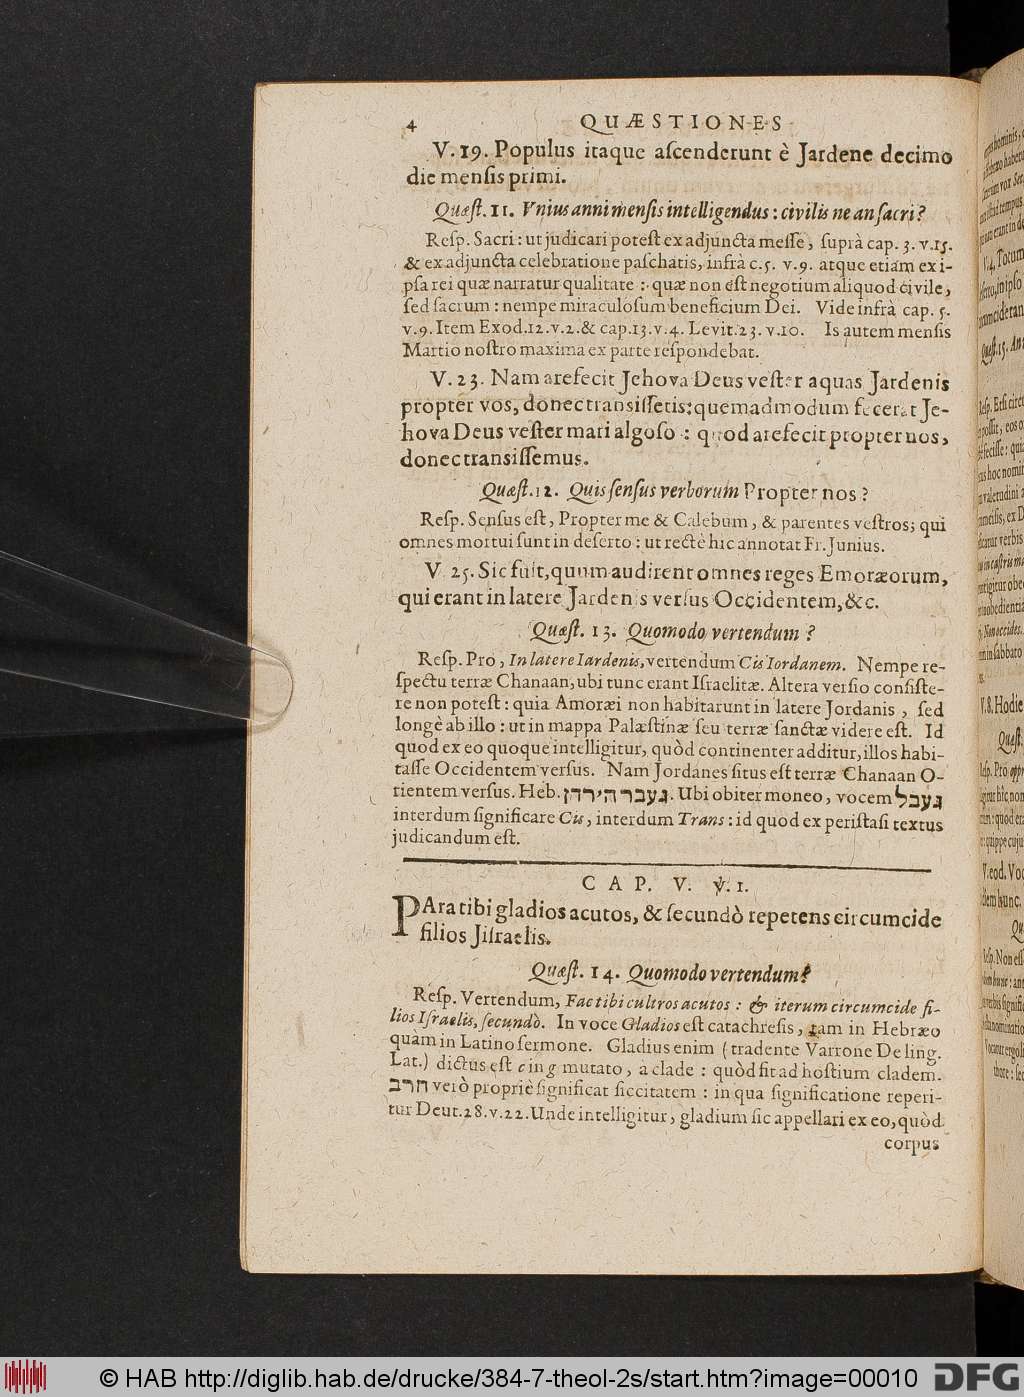 4 QUÆSTIONES
V. 19. Populus itaque aſcenderunt è Jardene decimo
die menſis primi.
Quæſt. 11. Vnius anni menſis intelligendus: civilis ne an ſacri?
Reſp. Sacri: ut judicari poteſt ex adjuncta meſſe, ſuprà cap. 3. v. 15.
& ex adjuncta celebratione paſchatis, infrà c. 5. v. 9. atque etiam ex i-
pſa rei quæ narratur qualitate: quæ non eſt negotium aliquod civile,
ſed ſacrum: nempe miraculoſum beneficium Dei. Vide infrà cap. 5.
v. 9. Item Exod. 12. v. 2. & cap. 13. v. 4. Levit. 23. v. 10. Is autem menſis
Martio noſtro maxima ex parte reſpondebat.
V. 23. Nam arefecit Jehova Deus veſter aquas Jardenis
propter vos, donec transiſſetis: quemadmodum fecerat Je-
hova Deus veſter mari algoſo: quod arefecit propter nos,
donec transiſſemus.
Quæſt. 12. Quis ſenſus verborum Propter nos?
Reſp. Senſus eſt, Propter me & Calebum, & parentes veſtros; qui
omnes mortui ſunt in deſerto: ut rectè hic annotat Fr. Junius.
V. 25. Sic fuit, quum audirent omnes reges Emoræorum,
qui erant in latere Jardenis verſus Occidentem, &c.
Quæſt. 13. Quomodo vertendum?
Reſp. Pro, In latere Iardenis, vertendum Cis Iordanem. Nempe re-
ſpectu terræ Chanaan, ubi tunc erant Iſraelitæ. Altera verſio conſiſte-
re non poteſt: quia Amoræi non habitarunt in latere Jordanis, ſed
longè ab illo: ut in mappa Palæſtinæ ſeu terræ ſanctæ videre eſt. Id
quod ex eo quoque intelligitur, quòd continenter additur, illos habi-
taſſe Occidentem verſus. Nam Jordanes ſitus eſt terræ Chanaan O-
rientem verſus. Heb. בעבר הירדן. Ubi obiter moneo, vocem בעבל
interdum ſignificare Cis, interdum Trans: id quod ex periſtaſi textus
judicandum eſt.
CAP. V. v. 1.
PAra tibi gladios acutos, & ſecundò repetens circumcide
filios Jiſraelis.
Quæſt. 14. Quomodo vertendum?
Reſp. Vertendum, Fac tibi cultros acutos: & iterum circumcide fi-
lios Iſraelis, ſecundò. In voce Gladios eſt catachreſis, tam in Hebræo
quàm in Latino ſermone. Gladius enim (tradente Varrone De ling.
Lat.) dictus eſt c in g mutato, a clade: quòd fit ad hoſtium cladem.
חרב verò propriè ſignificat ſiccitatem: in qua ſignificatione reperi-
tur Deut. 28. v. 22. Unde intelligitur, gladium ſic appellari ex eo, quòd
corpus
© HAB http://diglib.hab.de/drucke/384-7-theol-2s/start.htm?image=00010 DFG